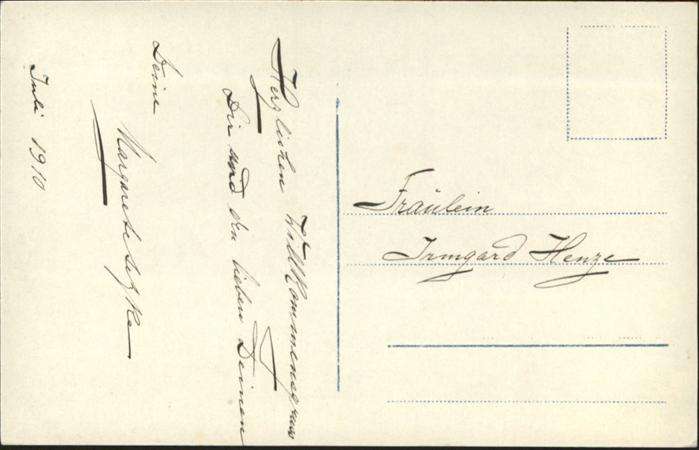 Herzlichen Willkommensgruss
Dir und den lieben Deinen
Deine
Margarete
Juli 1910
Fräulein
Irmgard Henze